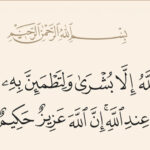 بِسْمِ اللَّهِ الرَّحْمَٰنِ الرَّحِيمِ
اللَّهُ إِلَّا بُشْرَىٰ وَلِتَطْمَئِنَّ بِهِ
عِندِ اللَّهِ ۚ إِنَّ اللَّهَ عَزِيزٌ حَكِيمٌ